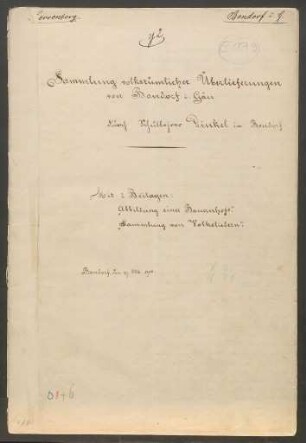 Herrenberg.
Bondorf i. G.
92
Sammlung volkstümlicher Überlieferungen
von Bondorf i. Gäu
durch Schullehrer Dinkel in Bondorf.
Mit 2 Beilagen:
Abbildung eines Bauernhofs.
Sammlung von Volksliedern.
Bondorf, den